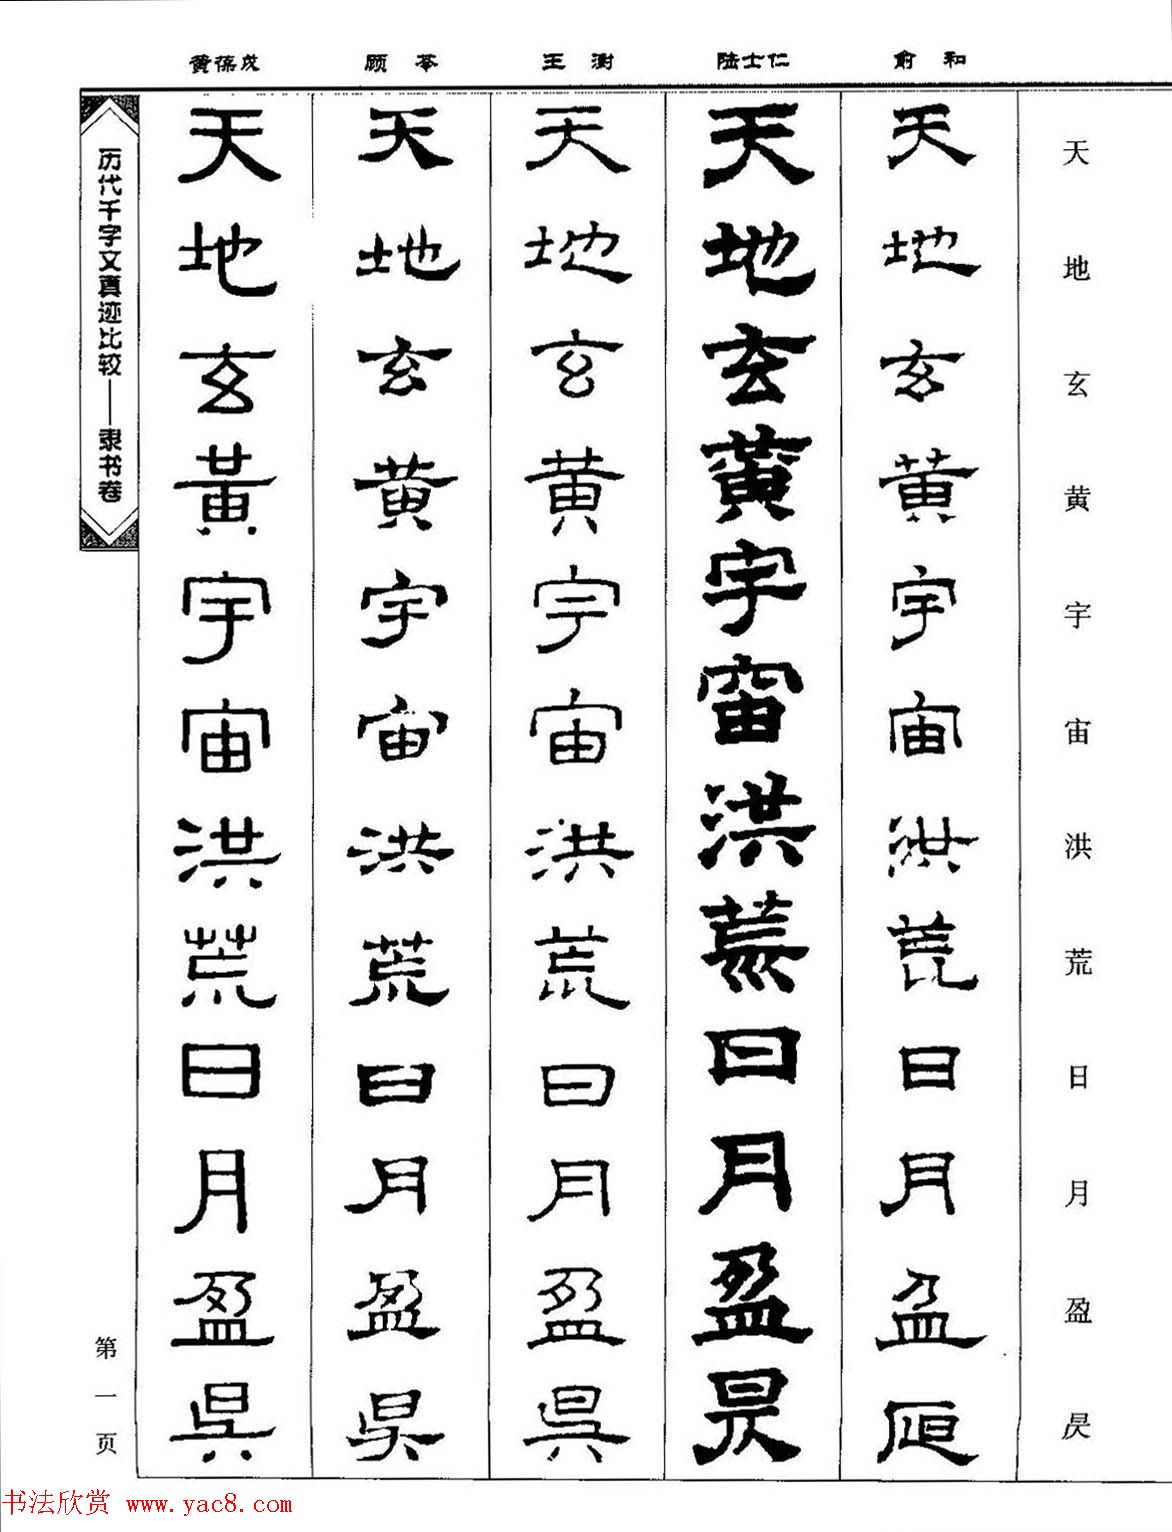 黄葆戉 顾苓 王澍 陆士仁 俞和
历代千字文真迹比较——隶书卷
天 天 天 天 天 天
地 地 地 地 地 地
玄 玄 玄 玄 玄 玄
黄 黄 黄 黄 黄 黄
宇 宇 宇 宇 宇 宇
宙 宙 宙 宙 宙 宙
洪 洪 洪 洪 洪 洪
荒 荒 荒 荒 荒 荒
日 日 日 日 日 日
月 月 月 月 月 月
盈 盈 盈 盈 盈 盈
昃 昃 昃 昃 昃 昃
第一页
书法欣赏 www.yac8.com